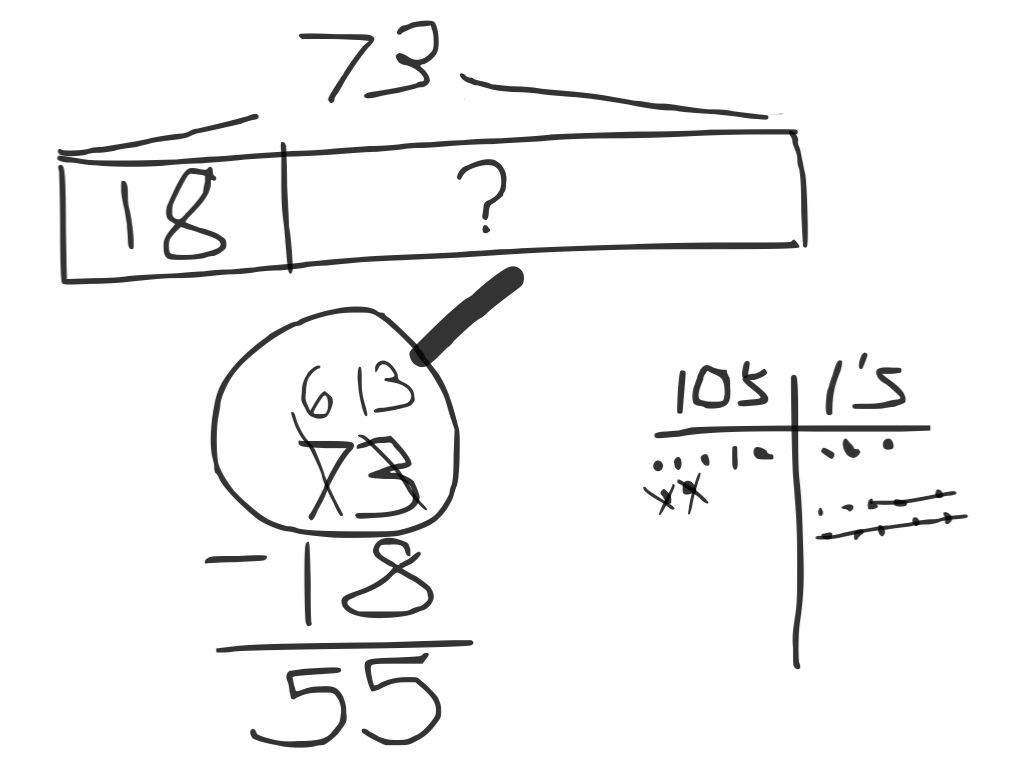 73
18 ?
6 13
73
-18
55
10s 1's